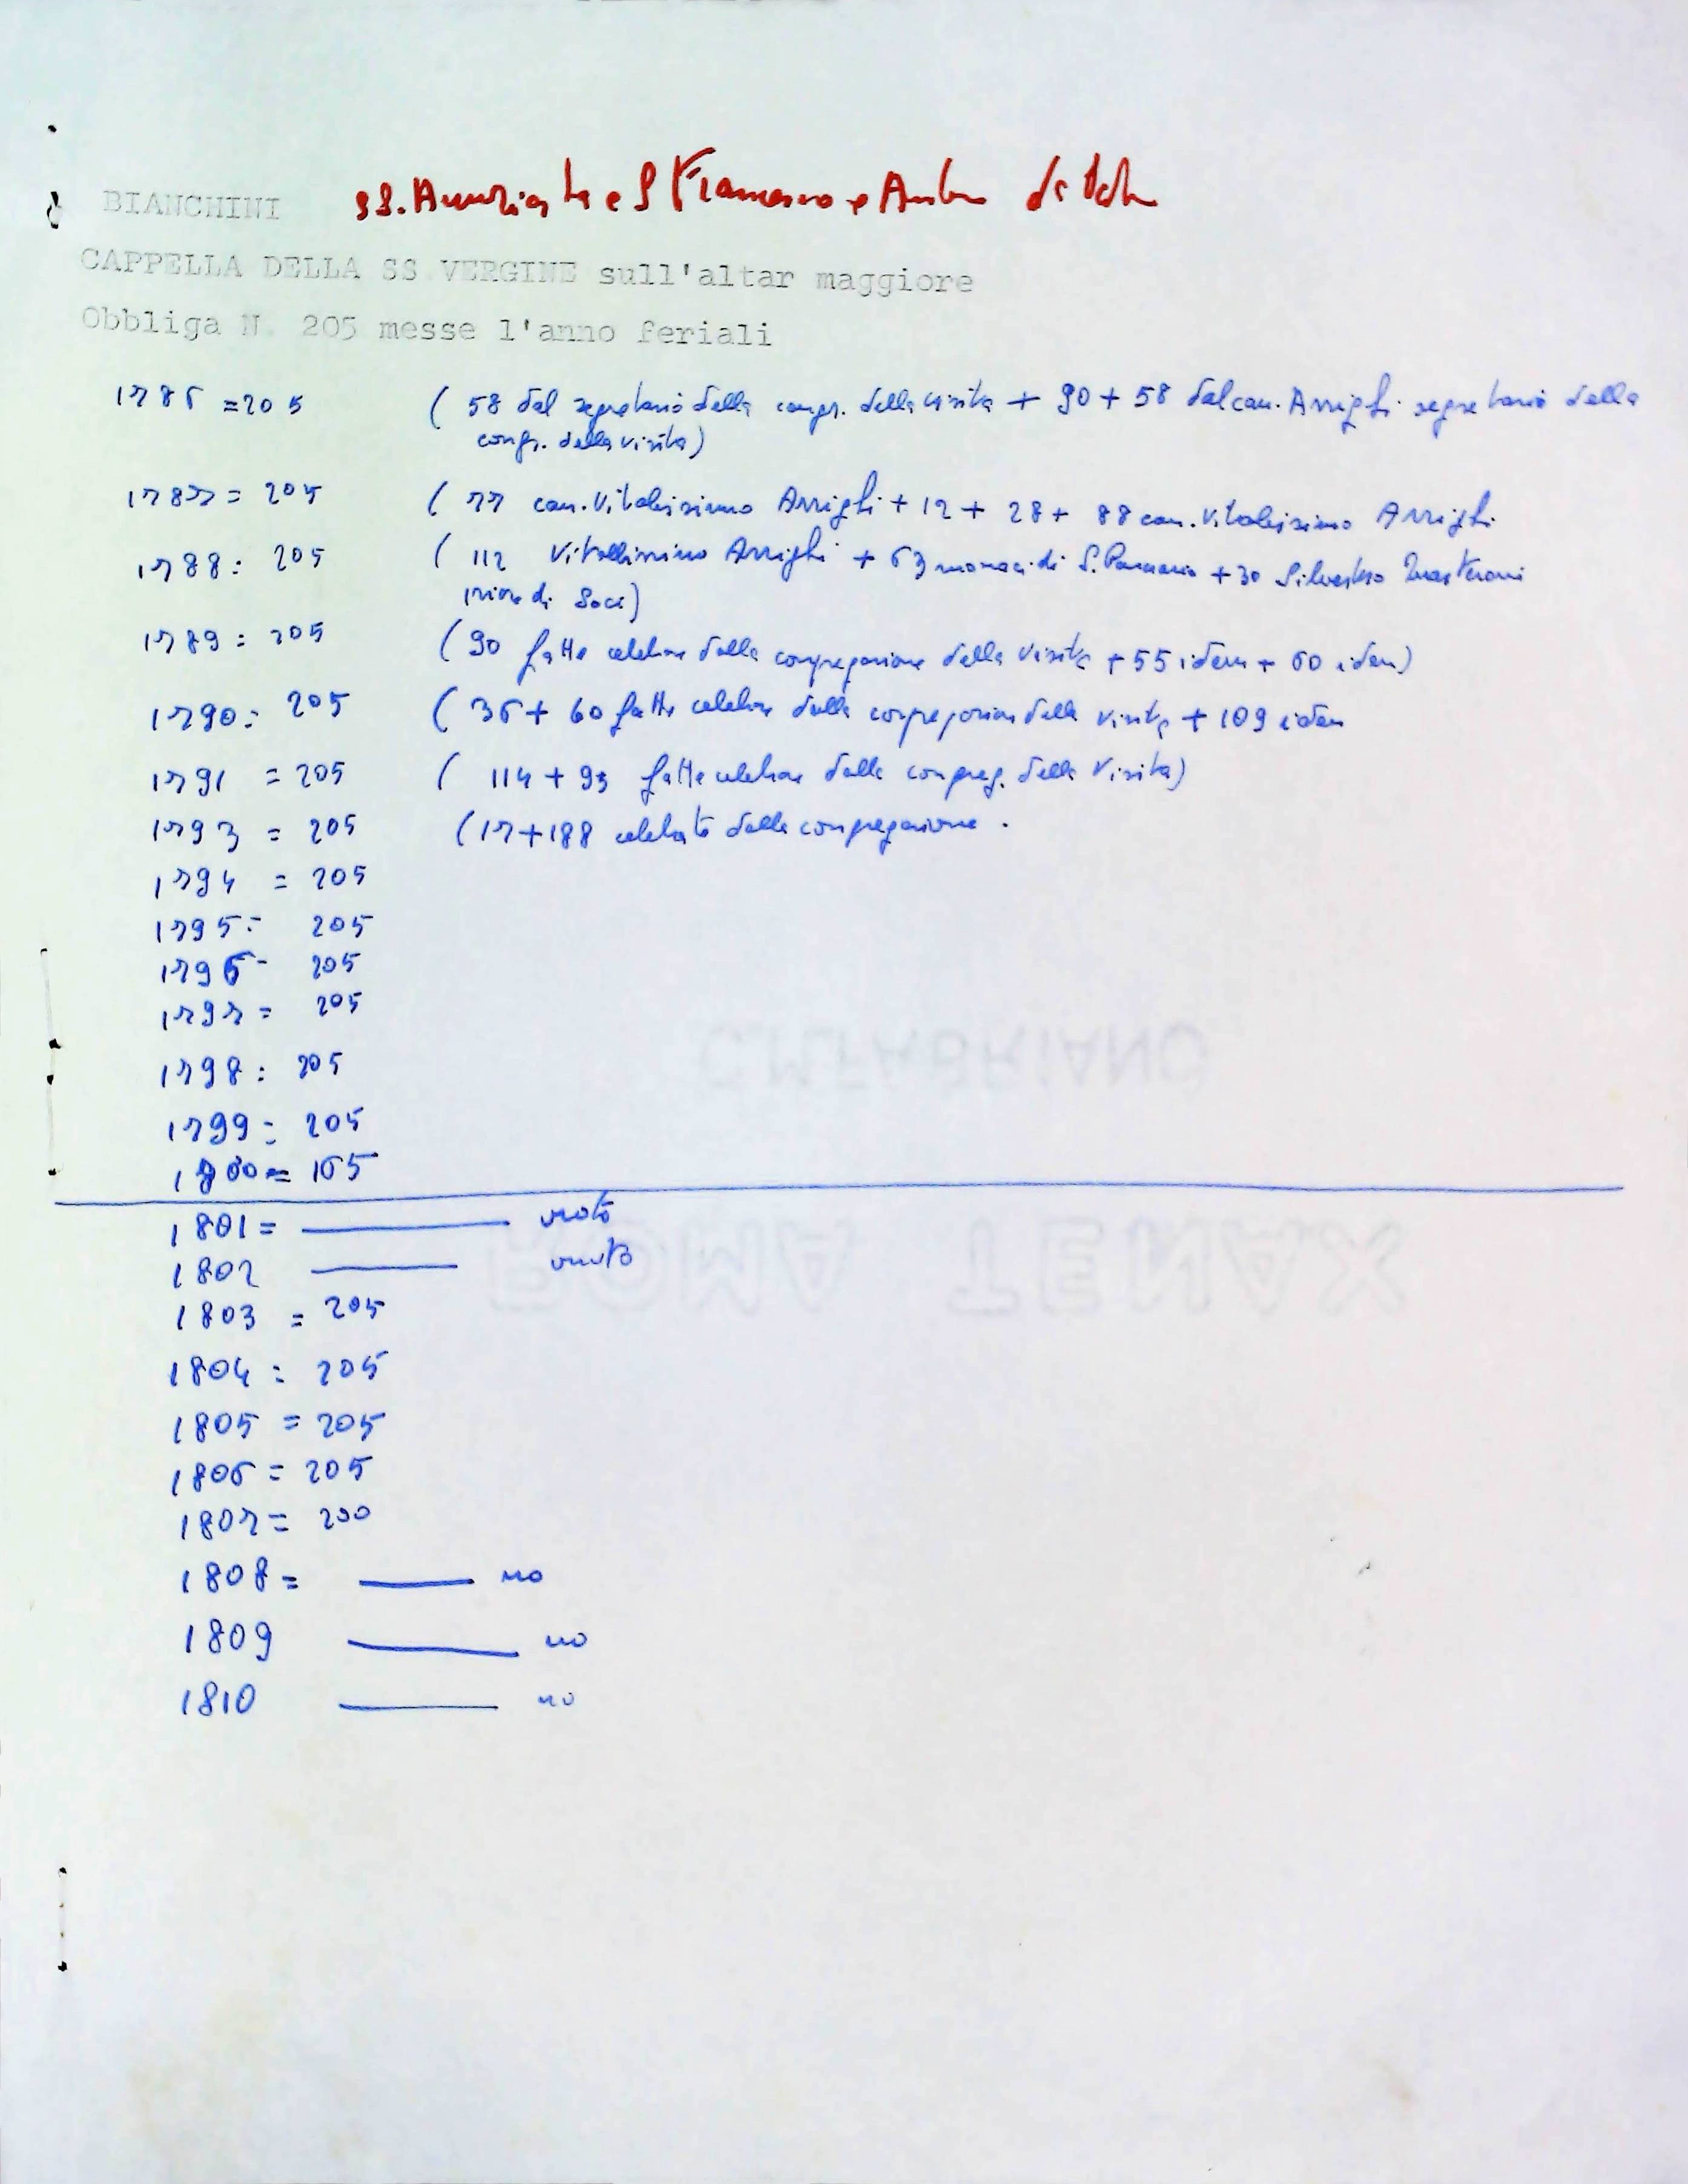 BIANCHINI SS. Annunziata e S Francesco e Antonio da Padova
CAPPELLA DELLA SS VERGINE sull'altar maggiore
Obbliga N. 205 messe l'anno feriali
1786 = 205 ( 58 dal segretario della congr. della visita + 90 + 58 dal can. Arrighi segretario della
congr. della visita)
1787 = 205 ( 77 can. Vitalissimo Arrighi + 12 + 28 + 88 can. Vitalissimo Arrighi
1788 = 205 ( 112 Vitallissimo Arrighi + 63 monaci di S. Pancrazio + 30 Silvestro
priore di Soci)
1789 = 205 ( 90 fatte celebrare dalla congregazione della visita + 55 idem + 60 idem)
1790 = 205 ( 36 + 60 fatte celebrare dalla congregazione della visita + 109 idem
1791 = 205 ( 114 + 93 fatte celebrare dalla congreg. della Visita)
1793 = 205 ( 17 + 188 celebrate dalla congregazione .
1794 = 205
1795 = 205
1796 - 205
1797 = 205
1798 : 205
1799 = 205
1800 = 165
1801 = vuoto
1802 vuoto
1803 = 205
1804 = 205
1805 = 205
1806 = 205
1807 = 200
1808 = no
1809 no
1810 no
C.M.FABRIANO
ROMA TENAX